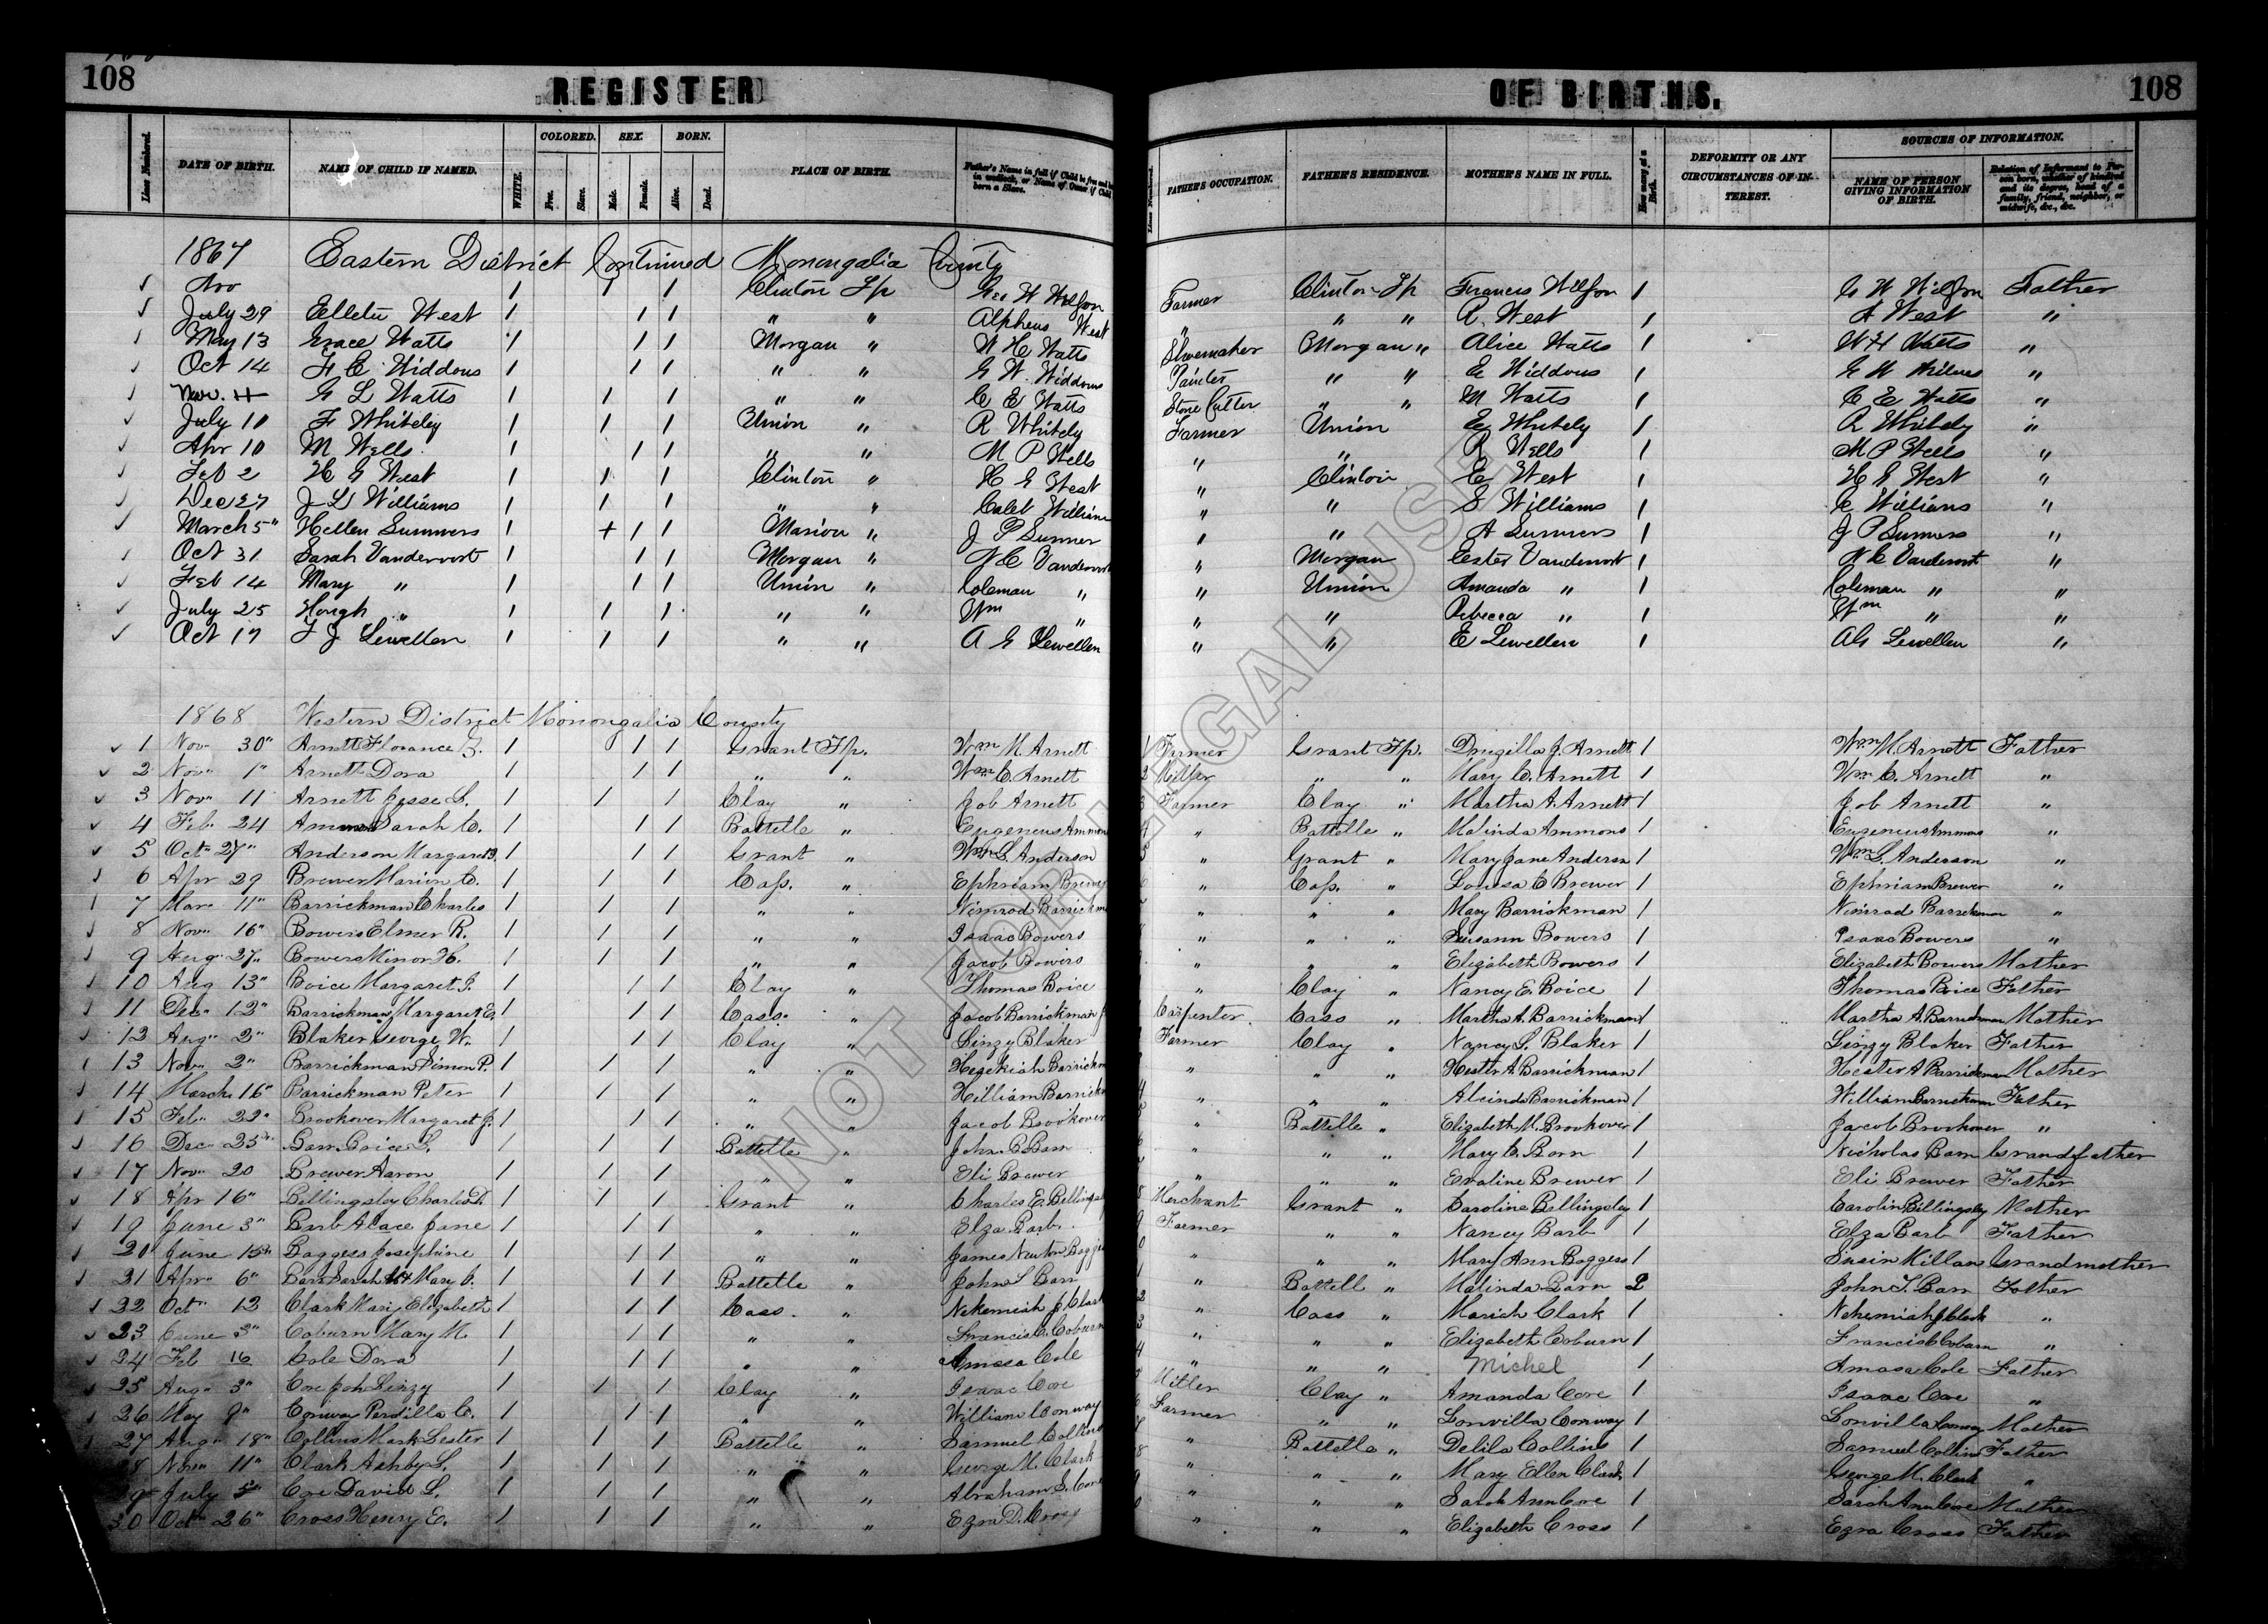 108 REGISTER OF BIRTHS. 108
Lines Numbered. DATE OF BIRTH. NAME OF CHILD IF NAMED. WHITE. COLORED. Free. Slave. SEX. Male. Female. BORN. Alive. Dead. PLACE OF BIRTH. Father's Name in full if Child be free and born in wedlock, or Name of Owner if Child born a Slave. Lines Numbered. FATHER'S OCCUPATION. FATHER'S RESIDENCE. MOTHER'S NAME IN FULL. How many at a Birth. DEFORMITY OR ANY CIRCUMSTANCES OF INTEREST. SOURCES OF INFORMATION. NAME OF PERSON GIVING INFORMATION OF BIRTH. Relation of Informant to Person born, whether of kindred and its degree, head of a family, friend, neighbor, or midwife, &c., &c.
1867 Eastern District Continued Monongalia County
Nov 1 1 1 Clinton Tp Geo W Wilson Farmer Clinton Tp Francis Wilson 1 G W Wilson Father
July 29 Elletu West 1 1 1 " " Alpheus West " " " R. West 1 A West "
May 13 Grace Watts 1 1 1 Morgan " W H Watts Shoemaker Morgan " Alice Watts 1 W H Watts "
Oct 14 F C Widdous 1 1 1 " " G W Widdous Painter " " E Widdous 1 G W "
Nov. 4 G L Watts 1 1 1 " " C E Watts Stone Cutter " " M Watts 1 C E Watts "
July 10 F Whiteley 1 1 1 Union " R Whitely Farmer Union E Whitely 1 R Whitely "
Apr 10 M Wells 1 1 1 " " M P Wells " " R Wells 1 M P Wells "
Feb 2 H G West 1 1 1 Clinton " H G West " Clinton E West 1 H G West "
Dec 27 J L Williams 1 1 1 " " Caleb William " " S Williams 1 C Williams "
March 5" Hellen Summers 1 + 1 1 Marion " J P Sumner " " A Summers 1 J P Summers "
Oct 31 Sarah Vandervort 1 1 1 Morgan " N C Vandervort " Morgan Ester Vandervort 1 N C Vandervort "
Feb 14 Mary " 1 1 1 Union " Coleman " " Union Amanda " 1 Coleman " "
July 25 Hough " 1 1 1 " " Wm " " " Rebecca " 1 Wm " "
Oct 17 F J Lewellen 1 1 1 " " A G Lewellen " " E Lewellen 1 A G Lewellen "
1868 Western District Monongalia County
1 Nov 30" Arnett Florance 1 1 1 Grant Tp. Wm M. Arnett 1 Farmer Grant Tp. Druzilla J. Arnett 1 Wm M. Arnett Father
2 Nov 1" Arnett Dora 1 1 1 " " Wm C. Arnett 2 Miller " " Mary C. Arnett 1 Wm C. Arnett "
3 Nov 11 Arnett Jesse L. 1 1 1 Clay " Job Arnett 3 Farmer Clay " Martha A. Arnett 1 Job Arnett "
4 Feb 24 Ammons Sarah C. 1 1 1 Battelle " Eugeneus Ammons 4 " Battelle " Malinda Ammons 1 Eugeneus Ammons "
5 Oct 27" Anderson Margaret 1 1 1 Grant " Wm L. Anderson 5 " Grant " Mary Jane Anderson 1 Wm L. Anderson "
6 Apr 29 Brewer Marion C. 1 1 1 Cass. " Ephriam Brewer " Cass. " Louisa C Brewer 1 Ephriam Brewer "
7 Mar 11" Barrickman Charles 1 1 1 " " Nimrod Barrickman " " " Mary Barrickman 1 Nimrod Barrickman "
8 Nov 16" Bowers Elmer R. 1 1 1 " " Isaac Bowers " " " Susann Bowers 1 Isaac Bowers "
9 Aug 27" Bowers Minor H. 1 1 1 " " Jacob Bowers " " " Elizabeth Bowers 1 Elizabeth Bowers Mother
10 Aug 13" Boice Margaret J. 1 1 1 Clay " Thomas Boice " Clay " Nancy E. Boice 1 Thomas Boice Father
11 Feb 12" Barrickman Margaret E. 1 1 1 Cass. " Jacob Barrickman Carpenter Cass " Martha A. Barrickman 1 Martha A. Barrickman Mother
12 Aug 2" Blaker George W. 1 1 1 Clay " Linzy Blaker Farmer Clay " Nancy L. Blaker 1 Linzy Blaker Father
13 Nov 2" Barrickman Simon P. 1 1 1 " " Hezekiah Barrickm " " " Hester A. Barrickman 1 Hester A Barrickman Mother
14 March 16" Barrickman Peter 1 1 1 " " William Barrickm " " " Alcinda Barrickman 1 William Barrickman Father
15 Feb 22" Brookover Margaret J. 1 1 1 " " Jacob Brookover " Battelle " Elizabeth M. Brookover 1 Jacob Brookover "
16 Dec 25" Brice L. 1 1 1 Battelle " John " " " Mary C. 1 Nicholas Grandfather
17 Nov 20 Brewer Aaron 1 1 1 " " Eli Brewer " " " Evaline Brewer 1 Eli Brewer Father
18 Apr 16" Billingsley Charles 1 1 1 Grant " Charles E. Billingsl Merchant Grant " Caroline Billingsley 1 Carolin Billingsley Mother
19 June 3" Barb Alace Jane 1 1 1 " " Elza Barb Farmer " " Nancy Barb 1 Elza Barb Father
20 June 15th Boggess Josephine 1 1 1 " " James Newton Bogge " " " Mary Ann Boggess 1 Susin Millan Grandmother
21 Apr 6" Sarah & Mary J. 1 1 1 Battelle " John L " Battell " Malinda 2 John L. Father
22 Oct 12 Clark Mary Elizabeth 1 1 1 Cass. " Nehemiah J. Clark " Cass " Mariah Clark 1 Nehemiah J Clark "
23 June 3" Coburn Mary M. 1 1 1 " " Francis C. Coburn " " " Elizabeth Coburn 1 Francis C Coburn "
24 Feb 16 Cole Dora 1 1 1 " " Amasa Cole " " " Michel 1 Amasa Cole Father
25 Aug 3" Core Joh Linzy 1 1 1 Clay " Isaac Core Miller Clay " Amanda Core 1 Isaac Core "
26 May 9" Conway Perdilla C. 1 1 1 " " William Conway Farmer " " Lonvilla Conway 1 Lonvilla Conway Mother
27 Aug 18" Collins Mark Lester 1 1 1 Battelle " Samuel Collins " Battelle " Delila Collins 1 Samuel Collins Father
28 Nov 11" Clark Ashby L. 1 1 1 " " George M. Clark " " " Mary Ellen Clark 1 George M. Clark "
9 July 5" Core David L. 1 1 1 " " Abraham S. Core " " " Sarah Ann Core 1 Sarah Ann Core Mother
30 Oct 26" Cross Henry E. 1 1 1 " " Ezra D. Cross " " " Elizabeth Cross 1 Ezra Cross Father
NOT FOR LEGAL USE